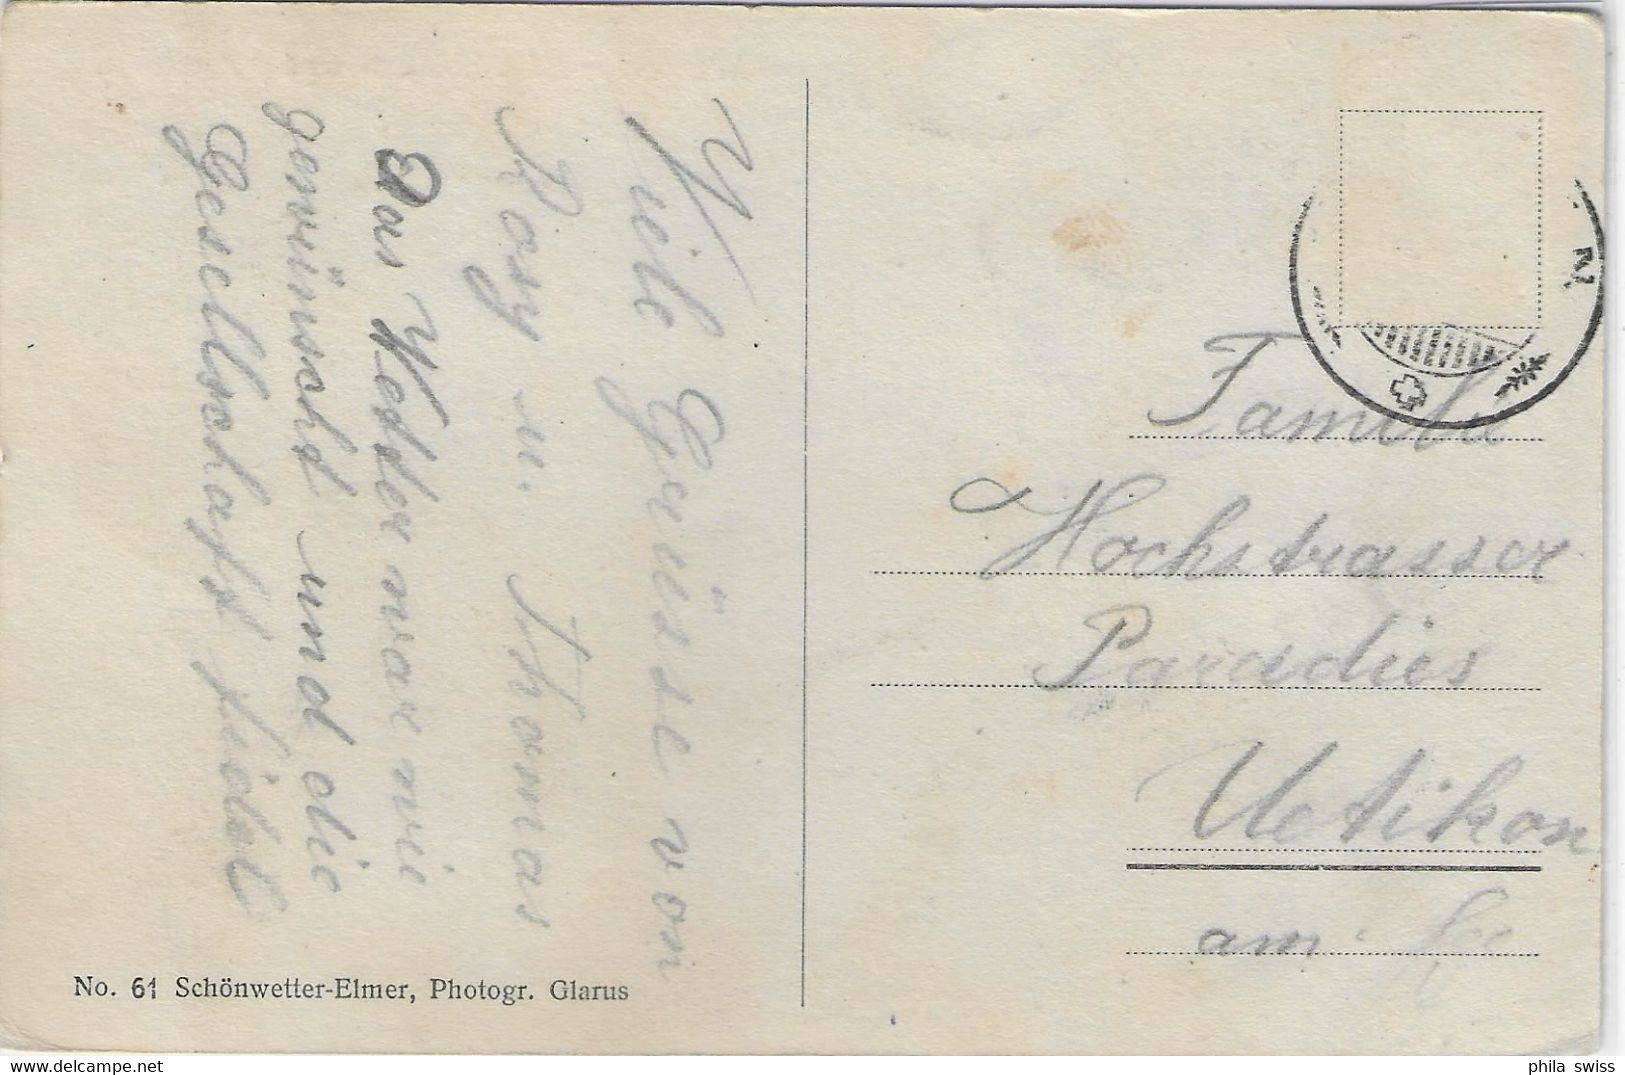 Viele Grüsse von
Rosy u. Thomas
Das Wetter war wie
gewünscht und die
Gesellschaft fidel
Familie
Hochstrasser
Paradies
Uetikon
am See
No. 61 Schönwetter-Elmer, Photogr. Glarus
delcampe.net
phila_swiss